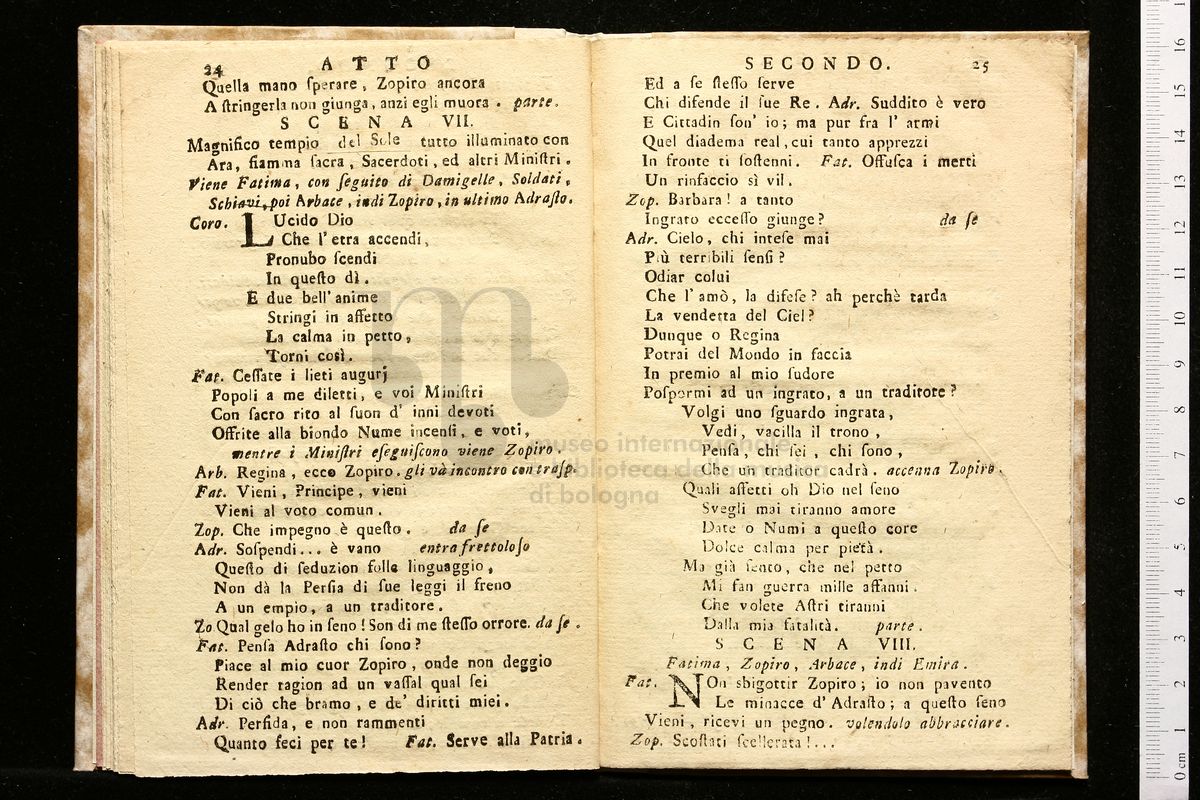 24 ATTO
Quella mano ſperare, Zopiro ancora
A ſtringerla non giunga, anzi egli muora. parte.
SCENA VII.
Magnifico tempio del Sole tutto illuminato con
Ara, fiamma ſacra, Sacerdoti, ed altri Miniſtri.
Viene Fatima, con ſeguito di Damigelle, Soldati,
Schiavi, poi Arbace, indi Zopiro, in ultimo Adraſto.
Coro. LUcido Dio
Che l' etra accendi,
Pronubo ſcendi
In queſto dì.
E due bell' anime
Stringi in affetto
La calma in petto,
Torni così.
Fat. Ceſſate i lieti augurj
Popoli a me diletti, e voi Miniſtri
Con ſacro rito al ſuon d' inni devoti
Offrite alla biondo Nume incenſi, e voti,
mentre i Miniſtri eſeguiſcono viene Zopiro.
Arb. Regina, ecco Zopiro. gli và incontro con traſp.
Fat. Vieni, Principe, vieni
Vieni al voto comun.
Zop. Che impegno è queſto. da ſe
Adr. Soſpendi... è vano entra frettoloſo
Queſto di ſeduzion folle linguaggio,
Non dà la Perſia di ſue leggi il freno
A un empio, a un traditore.
Zo Qual gelo ho in ſeno! Son di me ſteſſo orrore. da ſe.
Fat. Penſa Adraſto chi ſono?
Piace al mio cuor Zopiro, onde non deggio
Render ragion ad un vaſſal qual ſei
Di ciò che bramo, e de' diritti miei.
Adr. Perfida, e non rammenti
Quanto feci per te! Fat. Serve alla Patria.
SECONDO. 25
Ed a ſe ſteſſo ſerve
Chi difende il ſue Re. Adr. Suddito è vero
E Cittadin ſon' io; ma pur fra l' armi
Quel diadema real, cui tanto apprezzi
In fronte ti ſoſtenni. Fat. Offuſca i merti
Un rinfaccio sì vil.
Zop. Barbara! a tanto
Ingrato ecceſſo giunge? da ſe
Adr. Cielo, chi inteſe mai
Più terribili ſenſi?
Odiar colui
Che l' amò, la difeſe? ah perchè tarda
La vendetta del Ciel?
Dunque o Regina
Potrai del Mondo in faccia
In premio al mio ſudore
Poſpormi ad un ingrato, a un traditore?
Volgi uno ſguardo ingrata,
Vedi, vacilla il trono,
Penſa, chi ſei, chi ſono,
Che un traditor cadrà. accenna Zopiro.
Quali affetti oh Dio nel ſeno
Svegli mai tiranno amore
Date o Numi a queſto core
Dolce calma per pietà.
Ma già ſento, che nel petto
Mi fan guerra mille affanni.
Che volete Aſtri tiranni
Dalla mia fatalità. parte.
SCENA VIII.
Fatima, Zopiro, Arbace, indi Emira.
Fat. NOn sbigottir Zopiro; io non pavento
Le minacce d' Adraſto; a queſto ſeno
Vieni, ricevi un pegno. volendolo abbracciare.
Zop. Scoſtati ſcellerata!...
museo internazionale
e biblioteca della musica
di bologna
0 cm 1 2 3 4 5 6 7 8 9 10 11 12 13 14 15 16